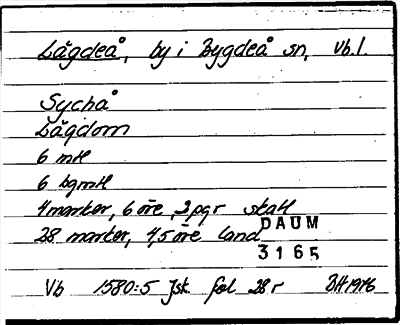 Lågdeå, by i Bygdeå sn, Vb.l.
Sychå
Lågdom
6 mtl
6 bgmtl
4 marker, 6 öre, 2 pgr skatt
28 marker, 4,5 öre land
DAUM
3165
Vb 1580:5 Jsk fol 28 r BH 1976